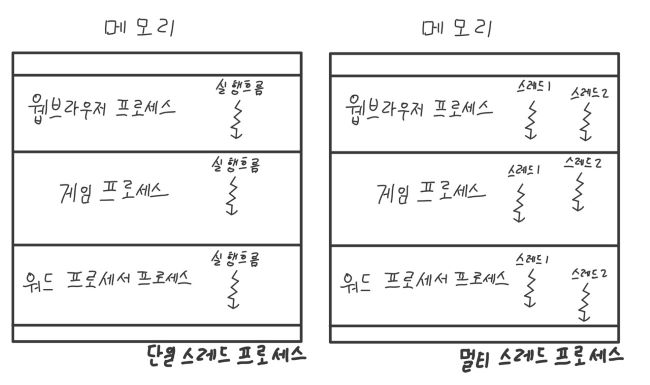 메모리
웹브라우저 프로세스
실행흐름
게임 프로세스
실행흐름
워드 프로세서 프로세스
실행흐름
단일 스레드 프로세스
메모리
웹브라우저 프로세스
스레드1
스레드2
게임 프로세스
스레드1
스레드2
워드 프로세서 프로세스
스레드1
스레드2
멀티 스레드 프로세스